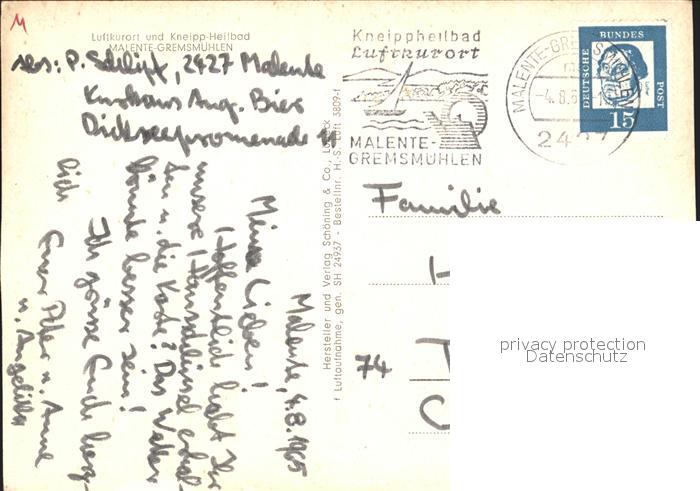 M
Luftkurort und Kneipp-Heilbad
MALENTE-GREMSMÜHLEN
Abs: P. Schlipf, 2427 Malente
Kurhaus Aug. Bier
Dieksee­promenade 11
Kneippheilbad
Luftkurort
MALENTE-
GREMSMÜHLEN
MALENTE-GREMSMÜHLEN
-4.8.6
2427
DEUTSCHE BUNDESPOST
15
Malente, 4.8.1965
Meine Lieben!
Hoffentlich habt Ihr
unsere Hausschlüssel erhal-
ten u. die Karte? Das Wetter
könnte besser sein!
Ich grüsse Euch herz-
lich
Euer Peter u. Anne
u. Angelika
Hersteller und Verlag Schöning & Co., Lübeck
Luftaufnahme, gen. SH 24937 - Bestellnr. H.-S. Luft 3809-f
Familie
74
privacy protection
Datenschutz